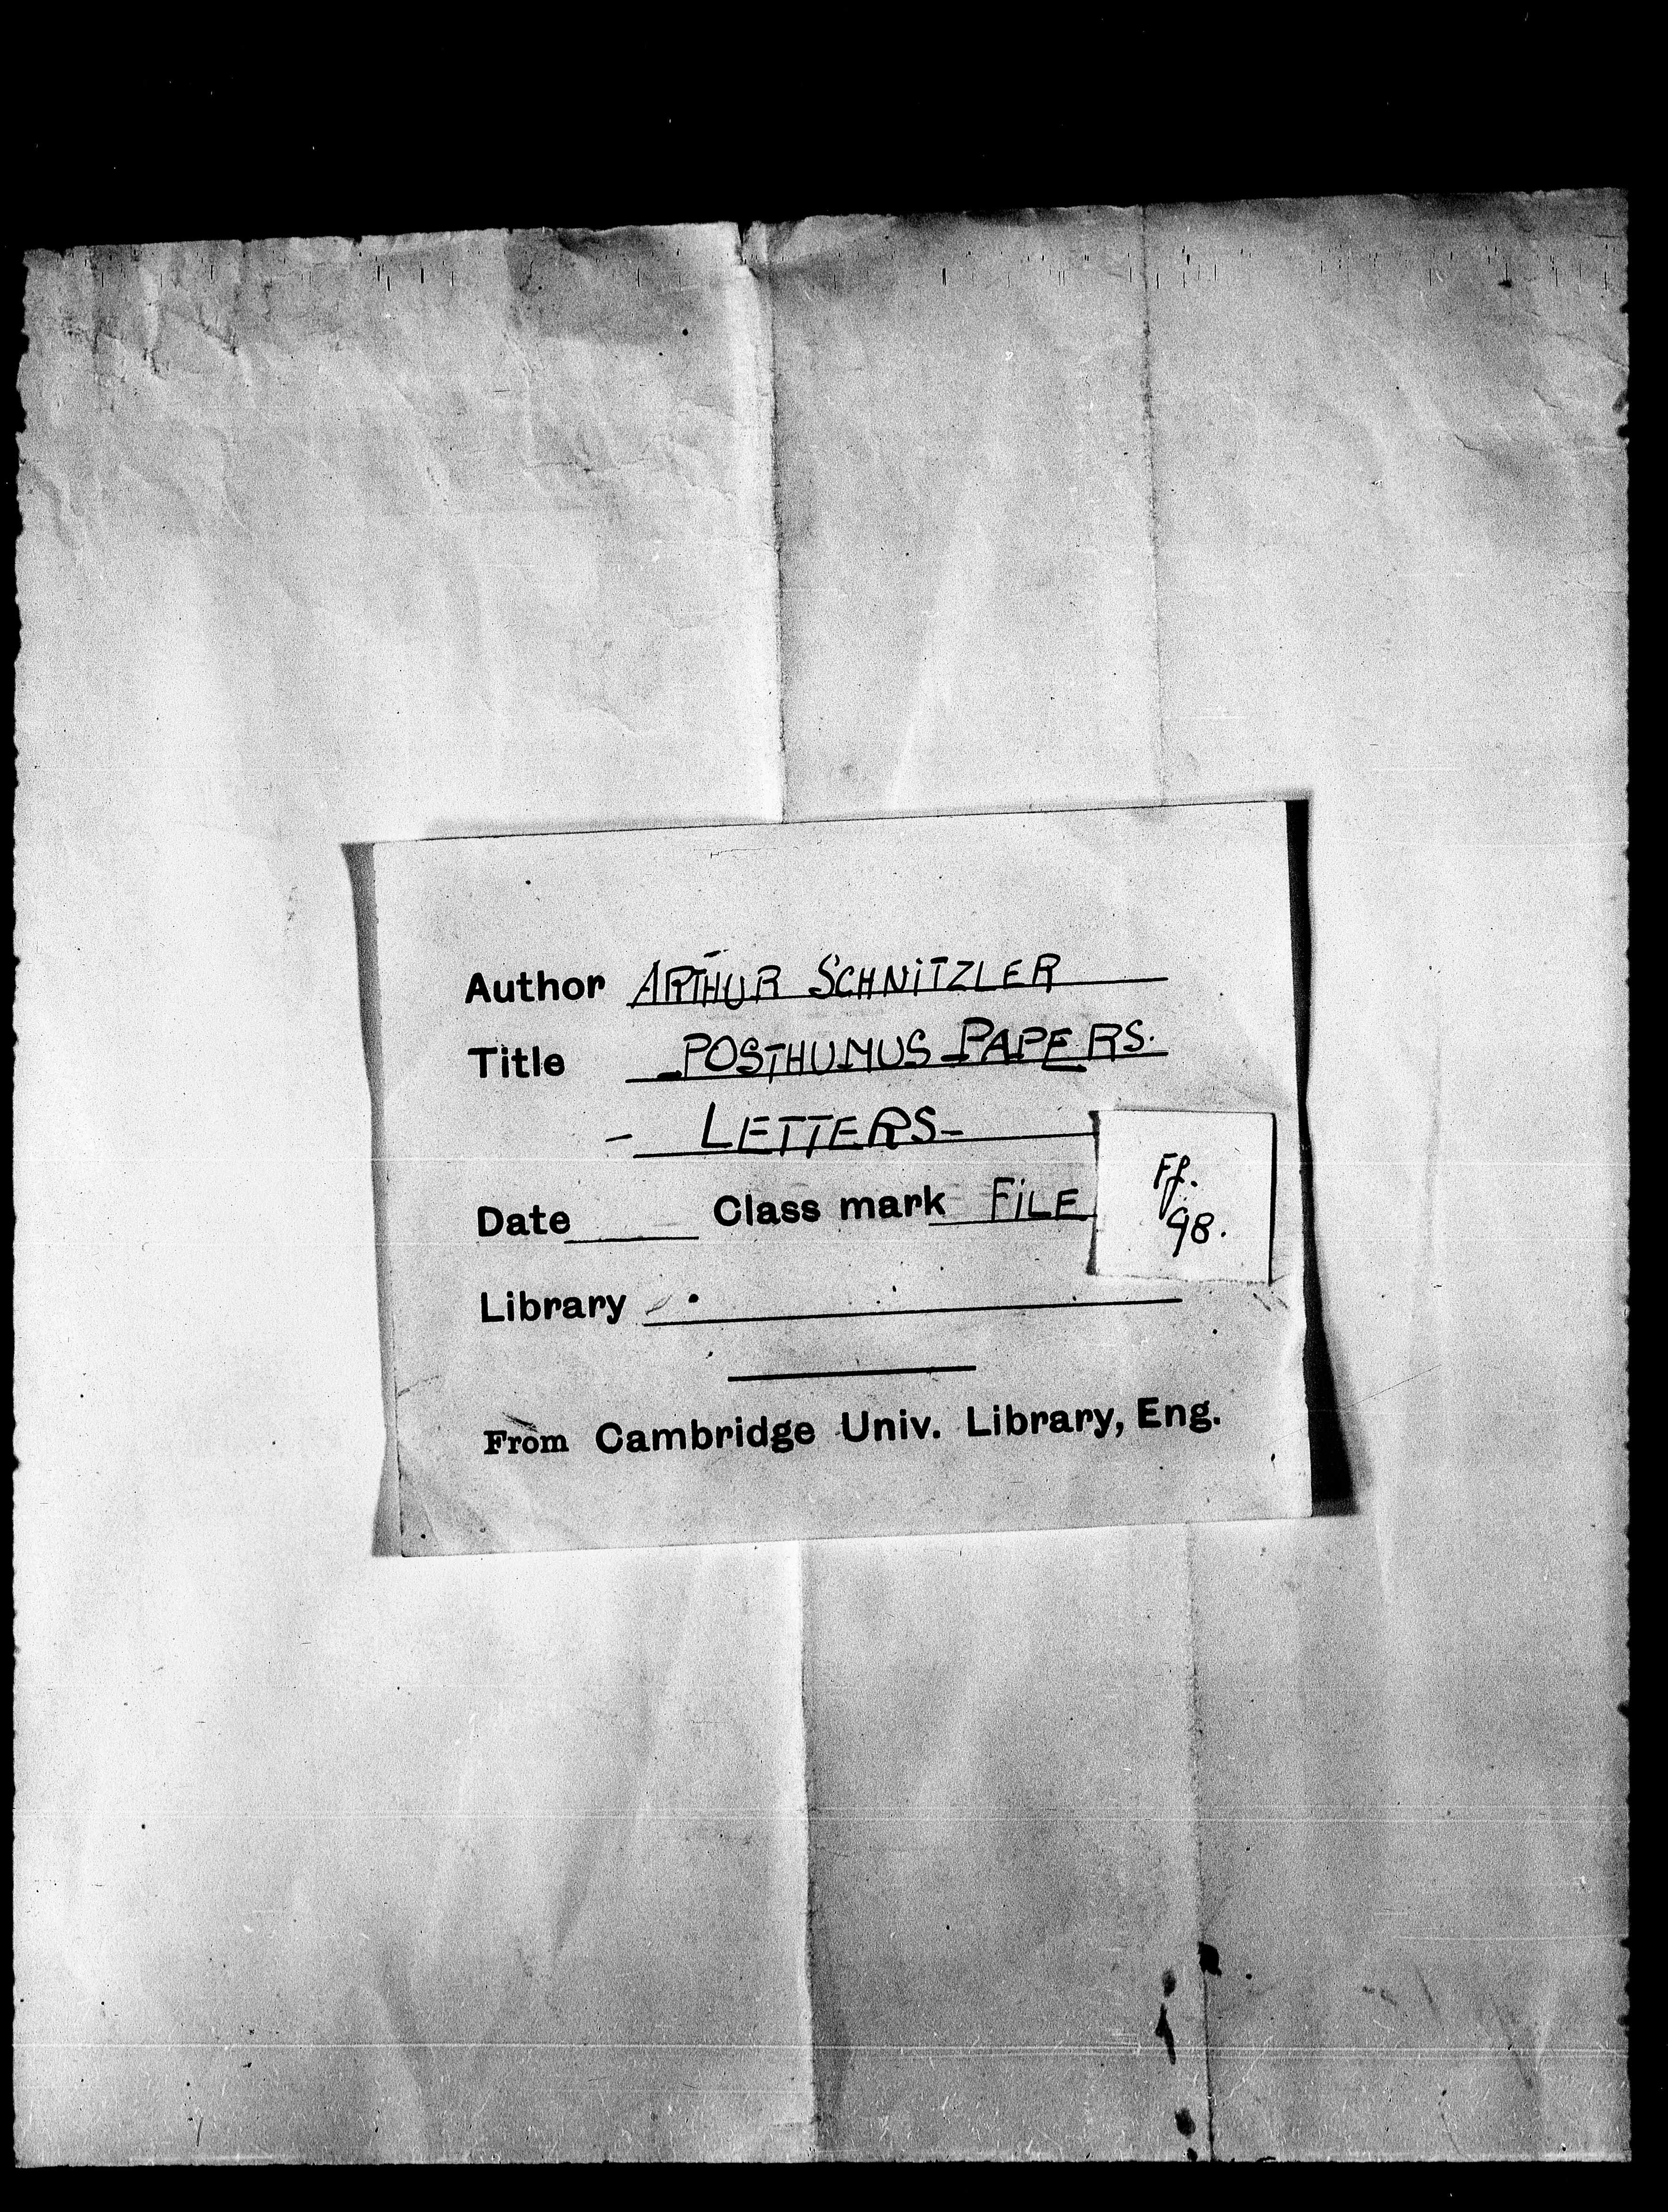 Author ARTHUR SCHNITZLER
Title POSTHUMUS PAPERS.
- LETTERS-
Date Class mark FILE
Ff.
98.
Library
From Cambridge Univ. Library, Eng.